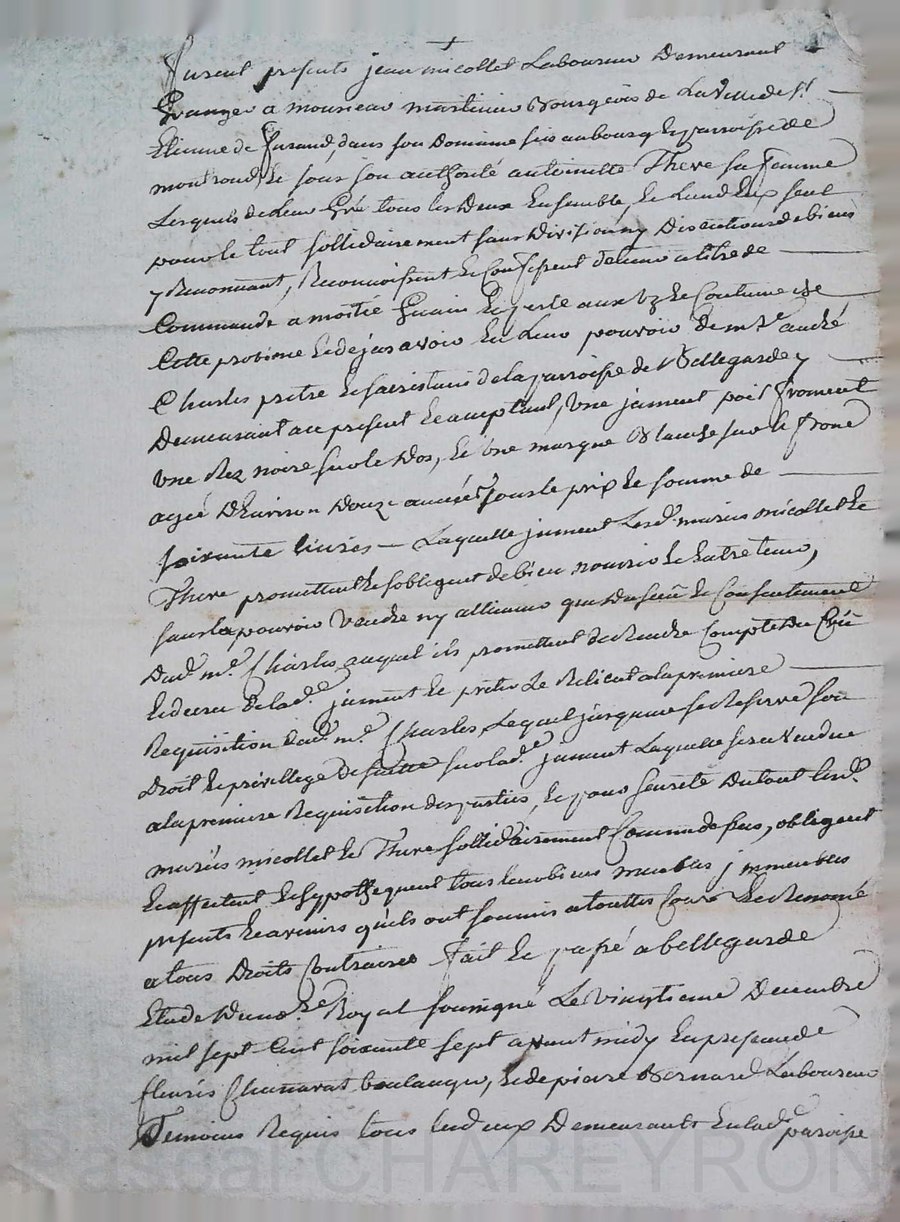 +
furent présents jean micollet Laboureur Demeurant
Granger a monsieur martinier Bourgeois de La Ville de St
Etienne de furand, dans son Domaine sis au bourg et parroisse de
montrond, et sous son authorité antoinette There sa femme
Lesquels de Leur Gré tous les Deux Ensemble, et L'un d'Eux seul
pour le tout sollidairement sans Division ny Discution de biens
y Renonceant, Reconnoissent et Confessent detenir a titre de
Commande a moitié Guain et perte aux uz et Coutume de
Cette province et dejas avoir En Leur pouvoir De mre andré
Charles pretre et sacristain de la parroisse de Bellegarde y
Demeurant ace present et acceptant, Une jument poil froment
une Rez noire sur le Dos, et une marque Blanche sur le frond
agée D'Environ Douze années sous le prix et somme de
soixante livres — Laquelle jument Lesd. mariés micollet et
There promettent et s'obligent de bien nourrir et Entretenir,
sans la pouvoir Vendre ny alliener que du sceu et Consentement
Dud. mre Charles auquel ils promettent de Rendre Compte du Crü
et decru de lad.e jument et preter Le Relicat a la premiere
Requisition Dud. mre Charles Lequel jusqu'a ce se Reserve son
Droit et privillege De suitte sur lad.e jument Laquelle sera Vendue
a la premiere Requisition des parties, et pour seureté Du tout lesd.
mariés micollet et There sollidairement Comme dessus, obligent
et affectent et hypothequent tous leurs biens meubles jmmeubles
presents et avenirs qu'ils ont soumis a touttes Cours et Renoncé
a tous Droits Contraires fait et passé a bellegarde
Etude Du no.re Royal soussigné Le vingtieme Decembre
mil sept Cent soixante sept avant midy En presence de
fleuris Chanavat boulanger, et de pierre Bernard Laboureur
Temoins Requis tous les deux Demeurants En lad.e
paroisse
Pascal CHAREYRON